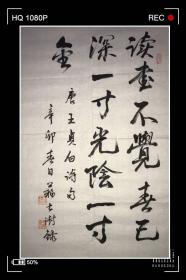 HQ 1080P
REC
读书不觉春已
深一寸光陰一寸
金
唐王貞白诗句
辛卯春日
50%